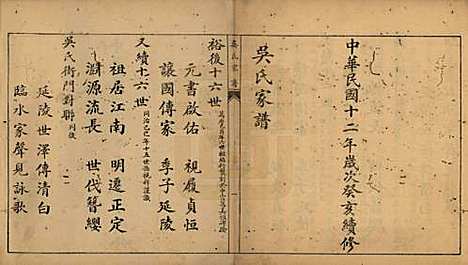 中華民國十二年歲次癸亥續修
吳氏家譜
吳氏家譜
裕後十六世
元書啟佑 視履貞恒
讓國傳家 季子延陵
又續十六世 同治乙巳年十五世
祖居江南 明遷正定
淵源流長 世代簪纓
吳氏街門對聯 列後
延陵世澤傳清白
臨水家聲見詠歌